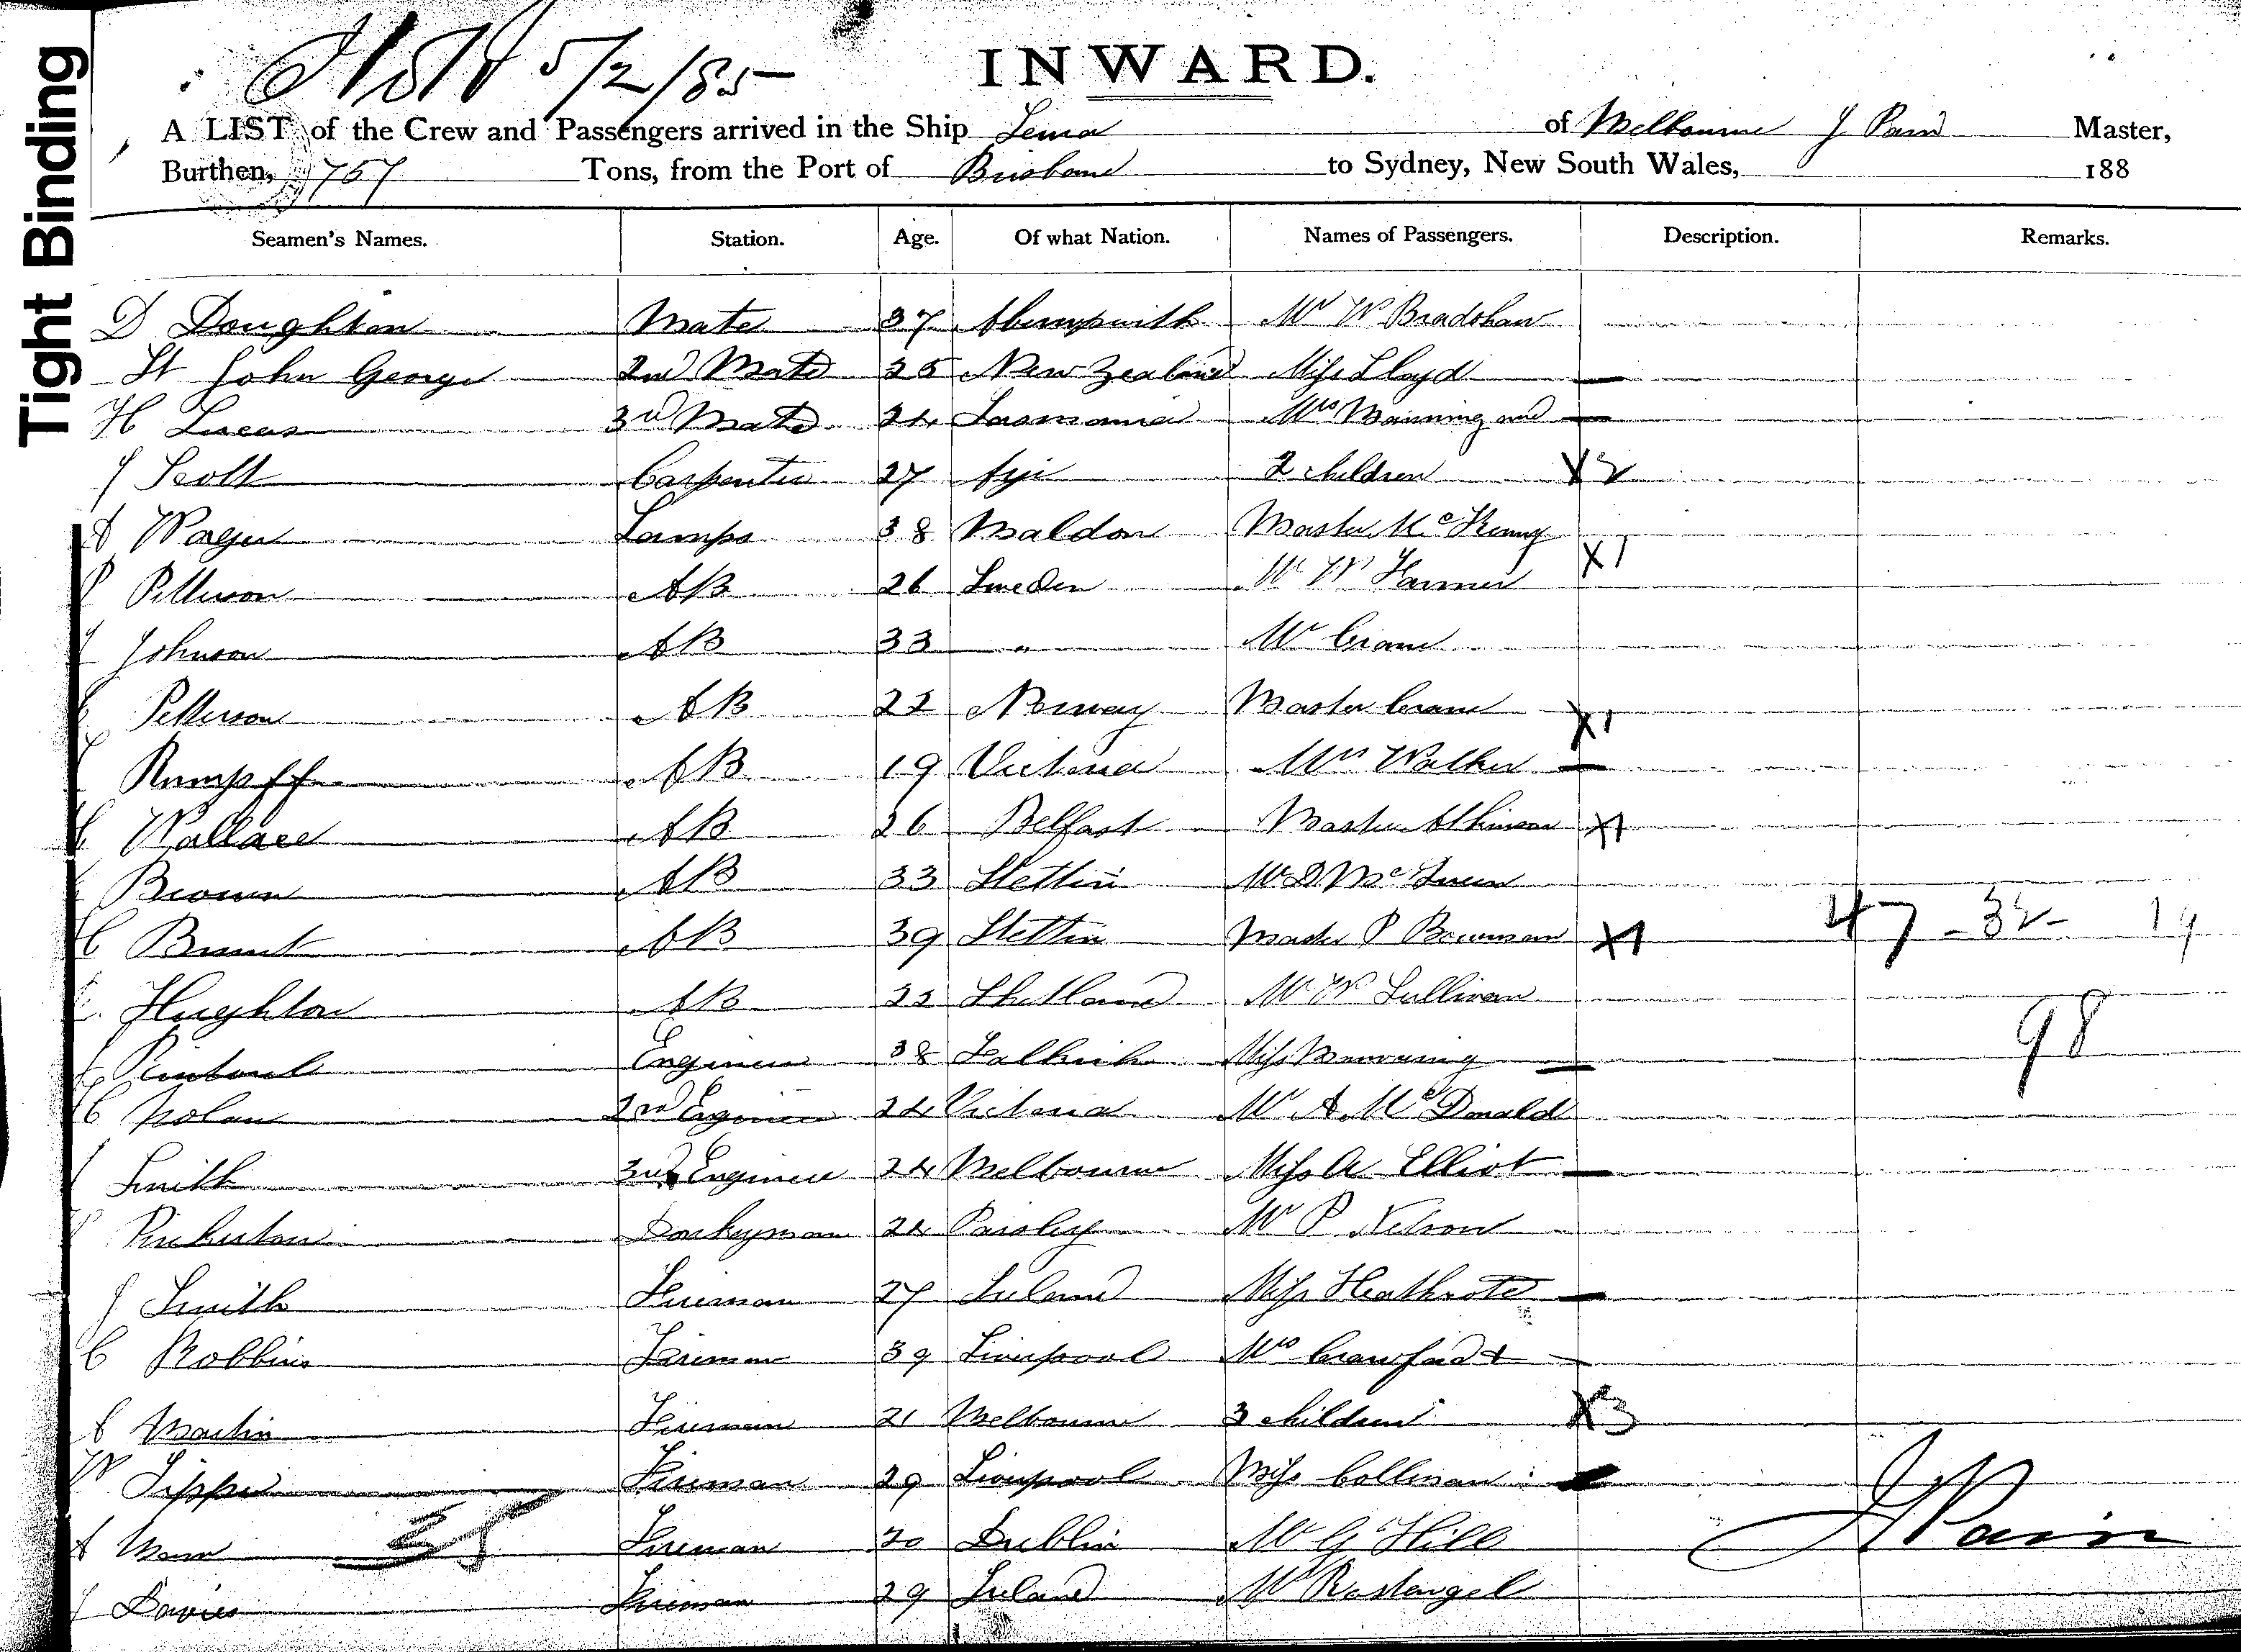 Tight Binding
5/2/85
INWARD.
A LIST of the Crew and Passengers arrived in the Ship of Melbourne J Pain Master,
Burthen, 757 Tons, from the Port of Brisbane to Sydney, New South Wales, 188
Seamen's Names. Station. Age. Of what Nation. Names of Passengers. Description. Remarks.
D Doughton Mate 37 Mr W Bradshaw
St John George 2nd Mate 25 New Zealand Miss Lloyd
H Lucas 3rd Mate 24 Tasmania Mrs Manning and
J Scott Carpenter 27 2 children X2
Lamps 38 Maldon Master
P Petterson AB 26 Sweden Mr W X1
Johnson AB 33 " Mr Crane
Petterson AB 22 Norway Master Crane X1
Rumpff AB 19 Victoria Mrs Walker
Wallace AB 26 Belfast Master Atkinson X1
Brown AB 33 Stettin Mr D Mc
C AB 39 Stettin Master P Bowman X1 47 - 32 - 19
Hughton AB 22 Shetland Mr W Sullivan
Engineer 38 Falkirk Miss Manning 98
Nolan 2nd Engineer 24 Victoria Mr A McDonald
Smith 3rd Engineer 24 Melbourne Miss A Elliot
Pinkerton Donkeyman 24 Paisley Mr P Nelson
J Smith Fireman 27 Ireland Miss Heathcote
C Robbins Fireman 39 Liverpool Mrs Crawford &
Martin Fireman 21 Melbourne 3 children X3
W Fireman 29 Liverpool Miss Collman
Mann 25 Fireman 30 Dublin Mr G Hill J Pain
J Davies Fireman 29 Ireland Mr Rostangel